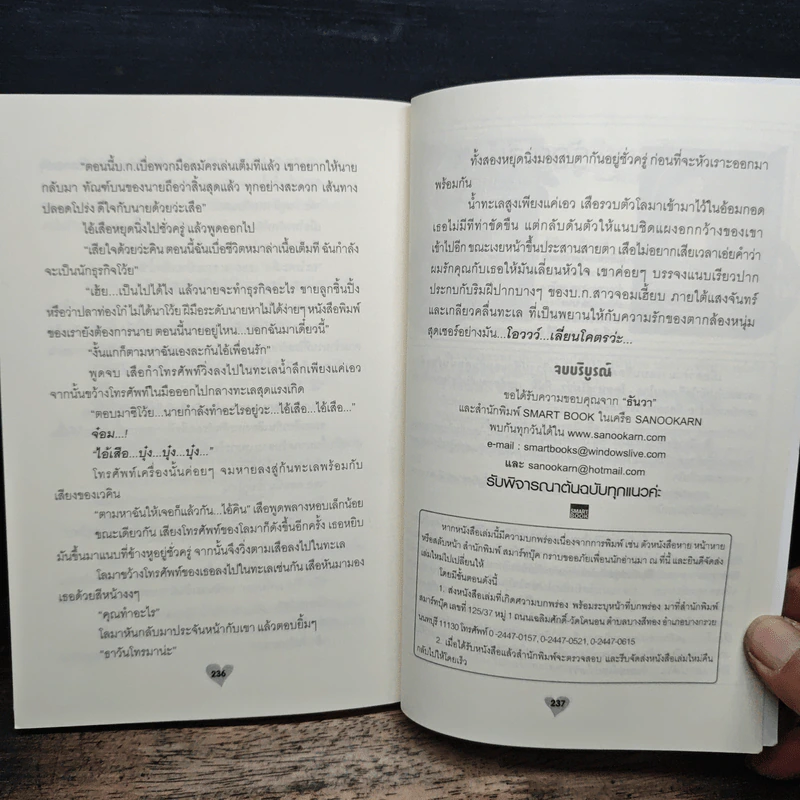 "ตอนนี้บ.ก.เบื่อพวกมือสมัครเล่นเต็มทีแล้ว เขาอยากให้นาย
กลับมา ทัณฑ์บนของนายถือว่าสิ้นสุดแล้ว ทุกอย่างสะดวก เส้นทาง
ปลอดโปร่ง ดีใจกับนายด้วยว่ะเสือ"
ไอ้เสือหยุดนิ่งไปชั่วครู่ แล้วพูดออกไป
"เสียใจด้วยว่ะคิน ตอนนี้ฉันเบื่อชีวิตหมาล่าเนื้อเต็มที ฉันกำลัง
จะเป็นนักธุรกิจโว้ย"
"เฮ้ย...เป็นไปได้ไง แล้วนายจะทำธุรกิจอะไร ขายลูกชิ้นปิ้ง
หรือว่าปลาท่องโก๋ ไม่ได้นาโว้ย ฝีมือระดับนายหาไม่ได้ง่ายๆ หนังสือพิมพ์
ของเรายังต้องการนาย ตอนนี้นายอยู่ไหน...บอกฉันมาเดี๋ยวนี้"
"งั้นแกก็ตามหาฉันเองละกันไอ้เพื่อนรัก"
พูดจบ เสือกำโทรศัพท์วิ่งลงไปในทะเลน้ำลึกเพียงแค่เอว
จากนั้นขว้างโทรศัพท์ในมือออกไปกลางทะเลสุดแรงเกิด
"ตอบมาซิโว้ย...นายกำลังทำอะไรอยู่วะ...ไอ้เสือ...ไอ้เสือ..."
จ๋อม...!
"ไอ้เสือ...บุ๋ง...บุ๋ง...บุ๋ง..."
โทรศัพท์เครื่องนั้นค่อยๆ จมหายลงสู่ก้นทะเลพร้อมกับ
เสียงของเวคิน
"ตามหาฉันให้เจอก็แล้วกัน...ไอ้คิน" เสือพูดพลางหอบเล็กน้อย
ขณะเดียวกัน เสียงโทรศัพท์ของโลมาก็ดังขึ้นอีกครั้ง เธอหยิบ
มันขึ้นมาแนบที่ข้างหูอยู่ชั่วครู่ จากนั้นจึงวิ่งตามเสือลงไปในทะเล
โลมาขว้างโทรศัพท์ของเธอลงไปในทะเลเช่นกัน เสือหันมามอง
เธอด้วยสีหน้างงๆ
"คุณทำอะไร"
โลมาหันกลับมาประจันหน้ากับเขา แล้วตอบยิ้มๆ
"ธาวันโทรมาน่ะ"
236
ทั้งสองหยุดนิ่งมองสบตากันอยู่ชั่วครู่ ก่อนที่จะหัวเราะออกมา
พร้อมกัน
น้ำทะเลสูงเพียงแค่เอว เสือรวบตัวโลมาเข้ามาไว้ในอ้อมกอด
เธอไม่มีทีท่าขัดขืน แต่กลับดันตัวให้แนบชิดแผงอกกว้างของเขา
เข้าไปอีก ขณะเงยหน้าขึ้นประสานสายตา เสือไม่อยากเสียเวลาเอ่ยคำว่า
ผมรักคุณกับเธอให้มันเลี่ยนหัวใจ เขาค่อยๆ บรรจงแนบเรียวปาก
ประกบกับริมฝีปากบางๆ ของบ.ก.สาวจอมเฮี้ยบ ภายใต้แสงจันทร์
และเกลียวคลื่นทะเล ที่เป็นพยานให้กับความรักของตากล้องหนุ่ม
สุดเซอร์อย่างมัน...โอววว์...เลี่ยนโคตรว่ะ...
จบบริบูรณ์
ขอได้รับความขอบคุณจาก "ธันวา"
และสำนักพิมพ์ SMART BOOK ในเครือ SANOOKARN
พบกันทุกวันได้ใน www.sanookarn.com
e-mail : smartbooks@windowslive.com
และ sanookarn@hotmail.com
รับพิจารณาต้นฉบับทุกแนวค่ะ
SMART
BOOK
หากหนังสือเล่มนี้มีความบกพร่องเนื่องจากการพิมพ์ เช่น ตัวหนังสือหาย หน้าหาย
หรือสลับหน้า สำนักพิมพ์ สมาร์ทบุ๊ค กราบขออภัยเพื่อนนักอ่านมา ณ ที่นี้ และยินดีจัดส่ง
เล่มใหม่ไปเปลี่ยนให้
โดยมีขั้นตอนดังนี้
1. ส่งหนังสือเล่มที่เกิดความบกพร่อง พร้อมระบุหน้าที่บกพร่อง มาที่สำนักพิมพ์
สมาร์ทบุ๊ค เลขที่ 125/37 หมู่ 1 ถนนเฉลิมศักดิ์-วัดโตนอน ตำบลบางสีทอง อำเภอบางกรวย
นนทบุรี 11130 โทรศัพท์ 0-2447-0157, 0-2447-0521, 0-2447-0615
2. เมื่อได้รับหนังสือแล้วสำนักพิมพ์จะตรวจสอบ และรีบจัดส่งหนังสือเล่มใหม่คืน
กลับไปให้โดยเร็ว
237